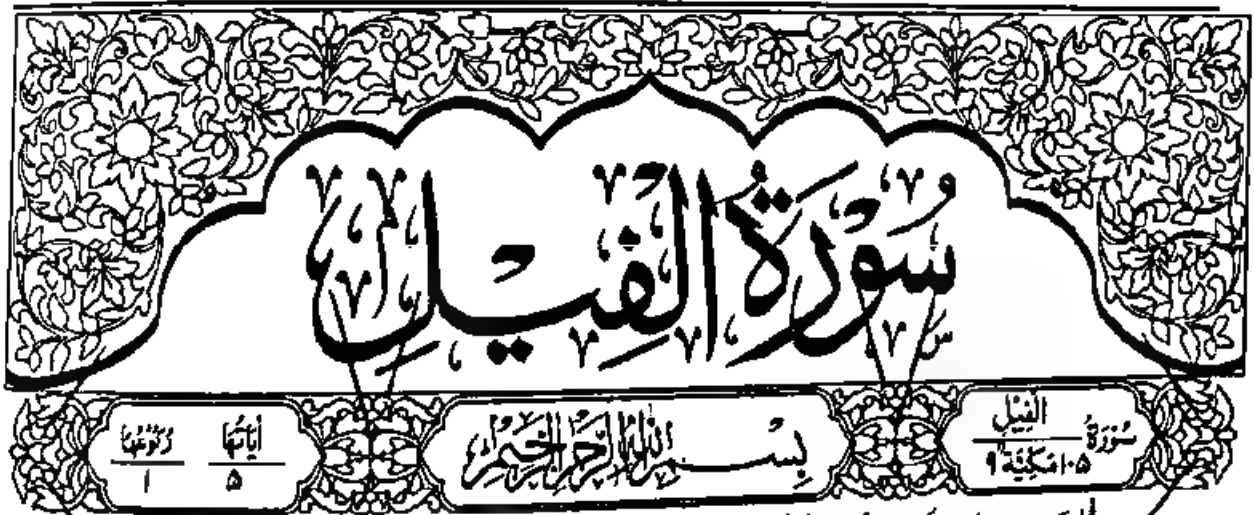 سُوْرَةُ الْفِيْلِ
سُوْرَةُ الْفِيْلِ ١٠٥ مَكِّيَّةٌ ١٩
بِسْمِ اللهِ الرَّحْمٰنِ الرَّحِيْمِ
اٰيَاتُهَا ٥
رُكُوْعُهَا ١